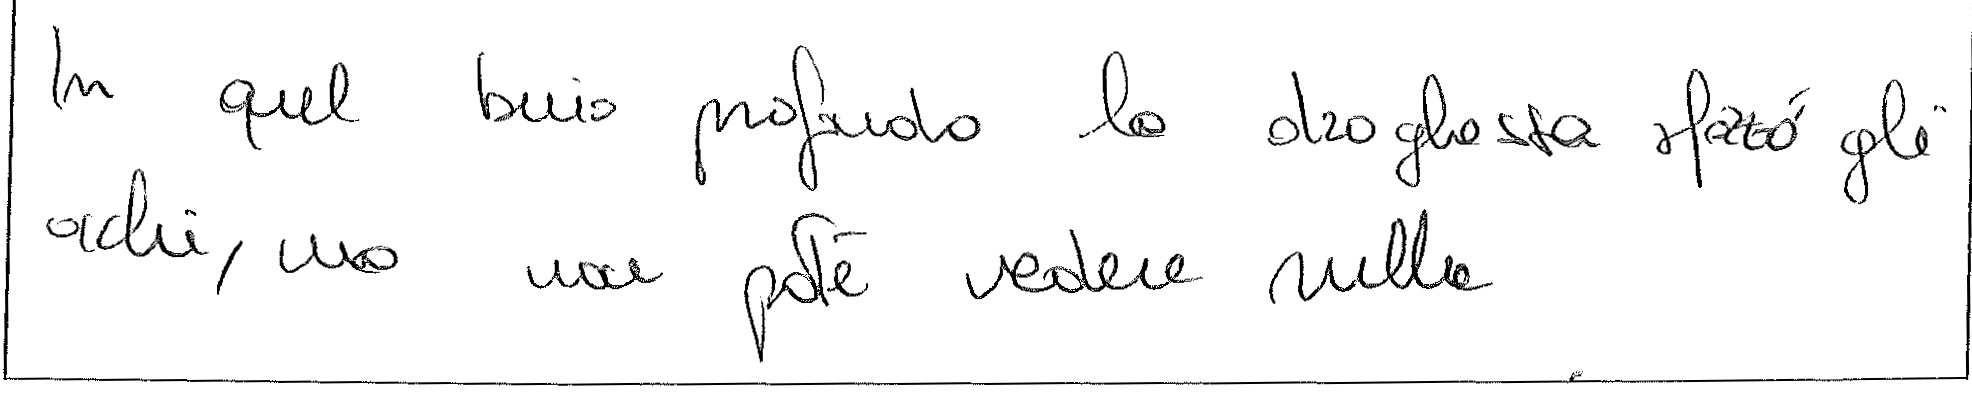 In quel buio profondo la draghessa sforzó gli
occhi, ma non poté vedere nulla